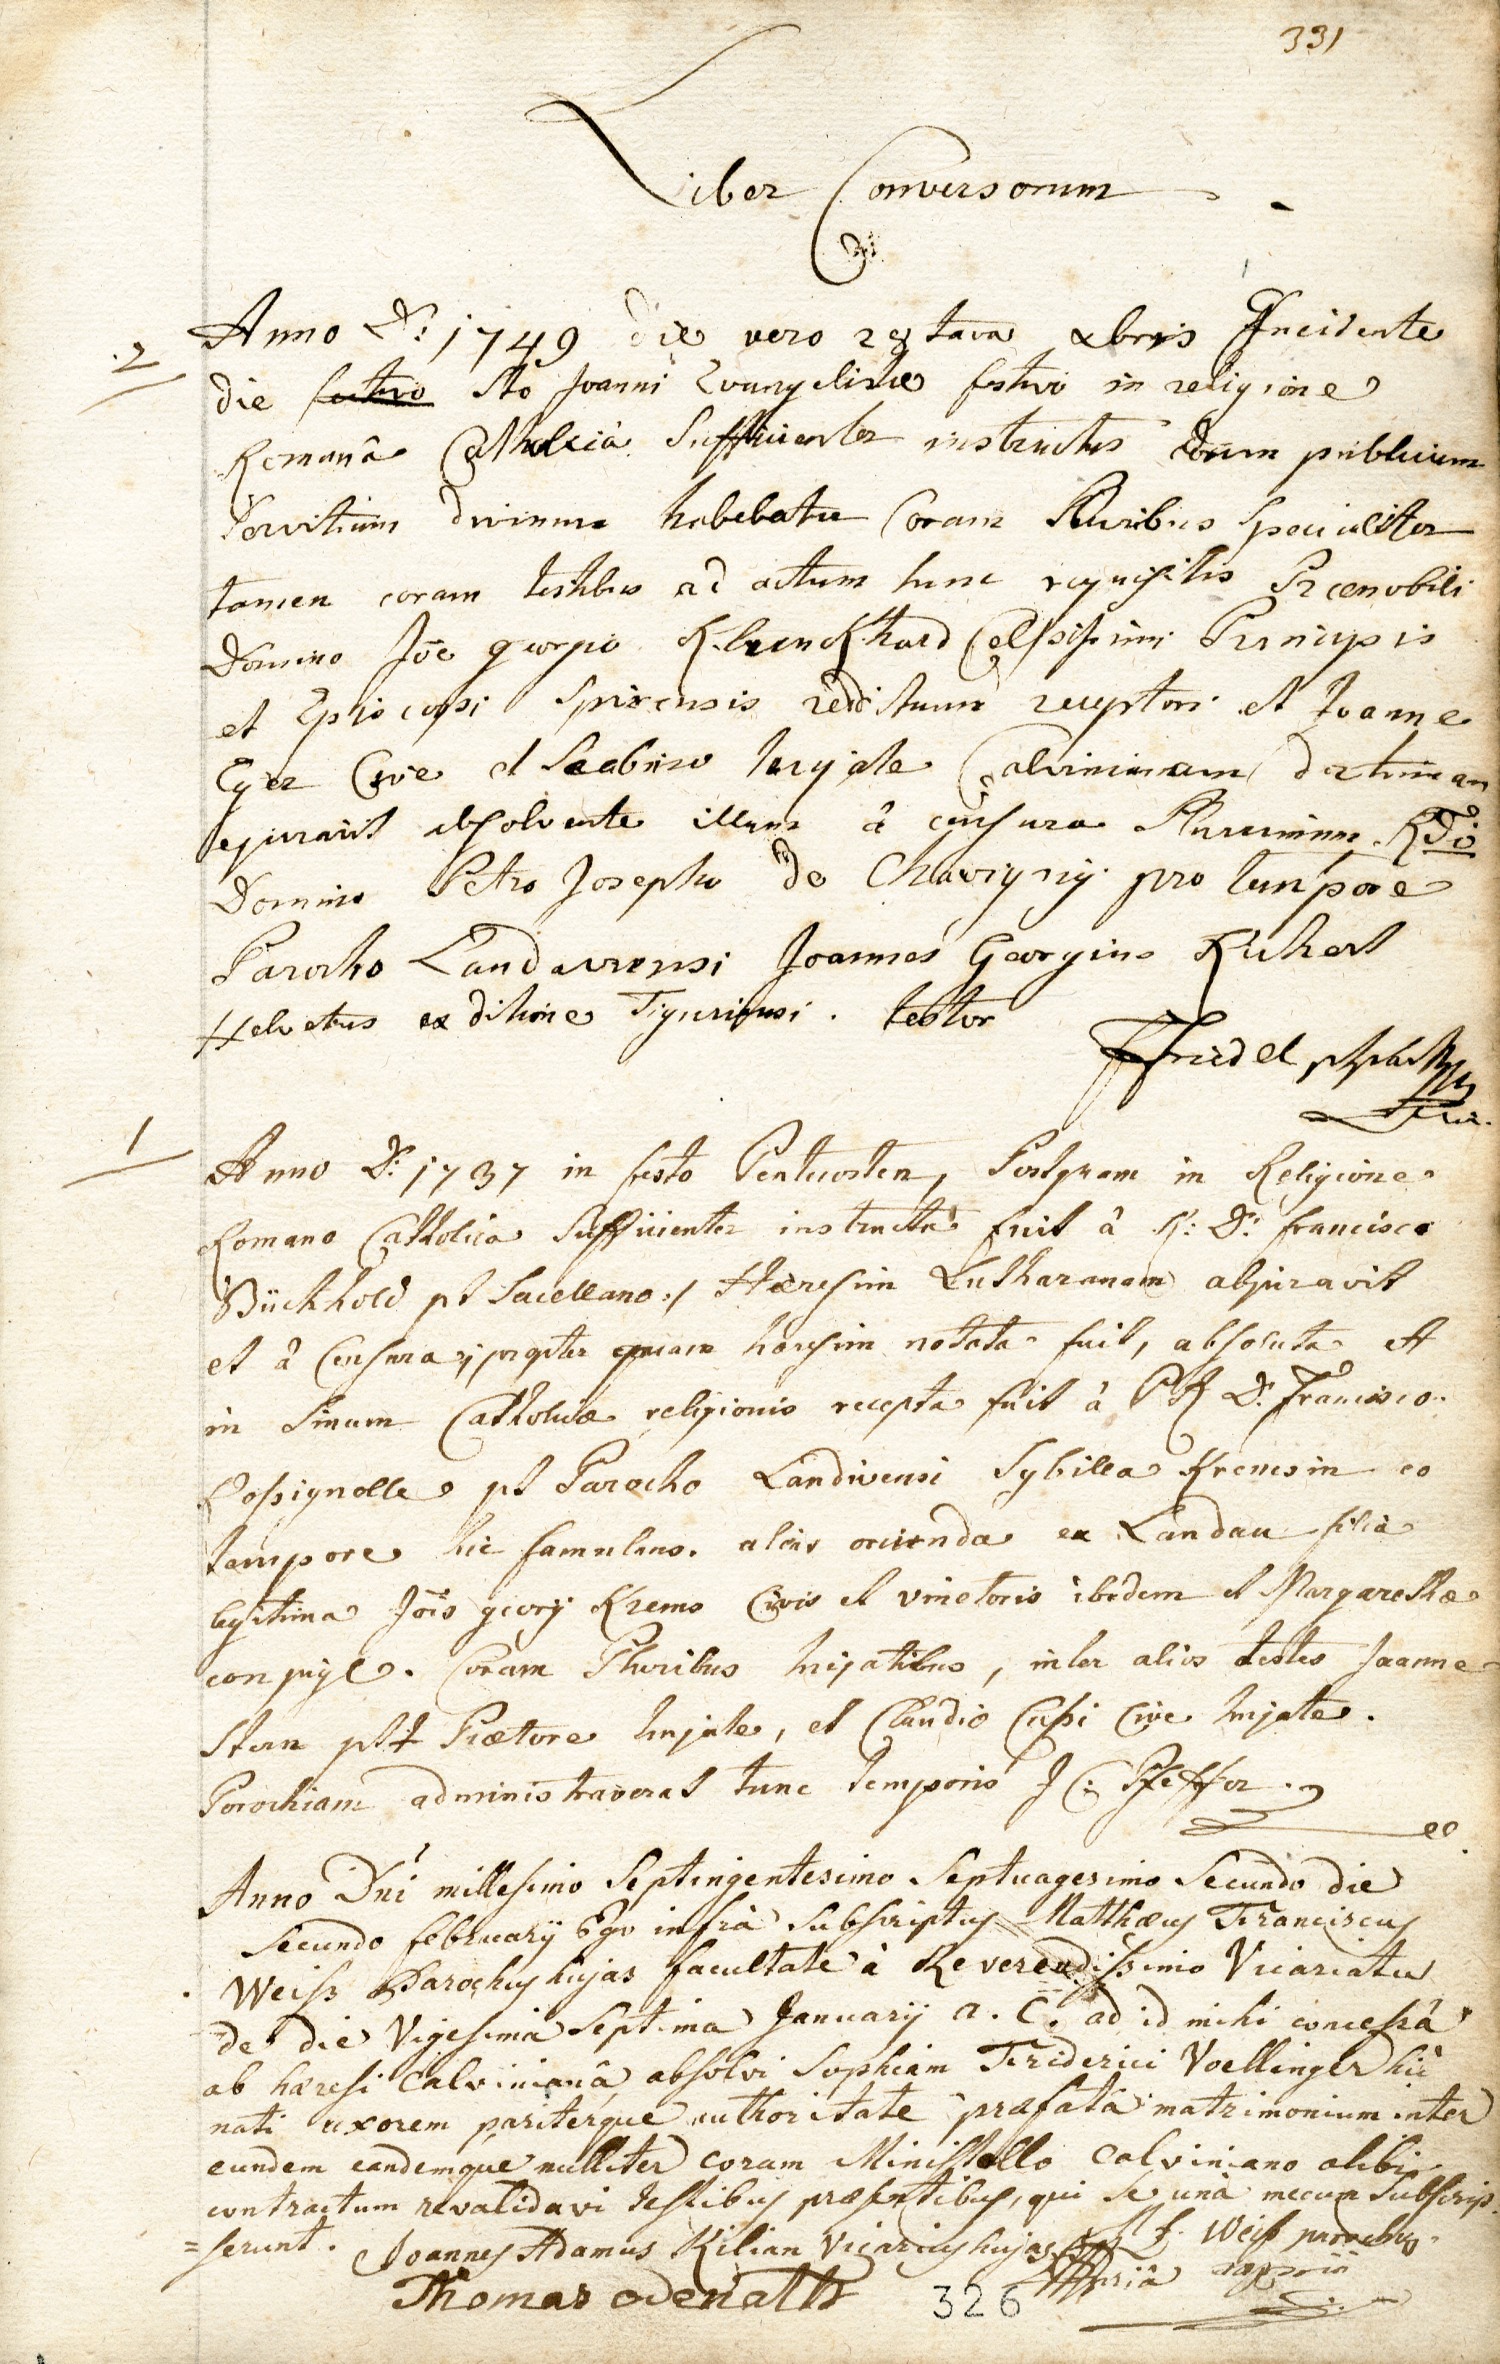 331
Liber Conversorum
2
Anno D: 1749 die vero 28tava xbris Incidente
die festivo Sto Joanni Evangelistæ festivo in religione
Romanâ Catholicâ Sufficienter instructus dum publicum
Servitium divinum habebatur Coram Pluribus Specialiter
tamen coram testibus ad actum hunc requisitis Prænobili
Domino Jōe georgio Celsissimi Principis
et Episcopi Spirensis reddituum receptori et Joanne
Eger Cive et Scabino hujate Calvinianam
ejuravit absolvente illum â censura Plurimum Rdo
Domino Petro Josepho de Chavigny pro tempore
Parocho Landavensi Joannes Georgius
Helvetus ex ditione Tigurinensi. testor
Friedel
1
Anno D: 1737 in festo Pentecostes, Postquam in Religione
Romano Catholica Sufficienter instructa fuit â R: D: francisco
Bückhold pt Sacellano, Hæresim Lutheranam abjuravit
et â Censura, propter quam hæresim notata fuit, absoluta et
in Sinum Catholicæ religionis recepta fuit â PR D: Francisco
Rossignolle pt Parocho Landavensi Sybilla Kremsin eo
tempore hic famulans. alias oriunda ex Landau filia
legitima Jōis georgij Krems Civis et vinitoris ibidem et Margarethæ
conjuge. Coram Pluribus hujatibus, inter alios testes Joanne
Stern plt Prætore hujate, et Claudio Cussi Cive hujate.
Parochiam administraverat tunc temporis J C: Pfeffer.
Anno Dni millesimo Septingentesimo Septuagesimo Secundo die
Secundo february Ego infrà Subscriptus Matthæus Franciscus
Weiss Parochus hujas facultate à Reverendissimo Vicariatu
de die Vigesima Septima January a. C. ad id mihi concessâ
ab hæresi Calvinianâ absolvi Sophiam Friderici Voellinger hic
nati uxorem pariterque authoritate præfatâ matrimonium inter
eundem eandemque nulliter coram Ministello Calviniano alibi
contractum revalidavi testibus præsentibus, qui se unà mecum Subscrip
=serunt. Joannes Adamus Kilian Vicarius hujas F. Weiss parochus
Thomas odenath 326